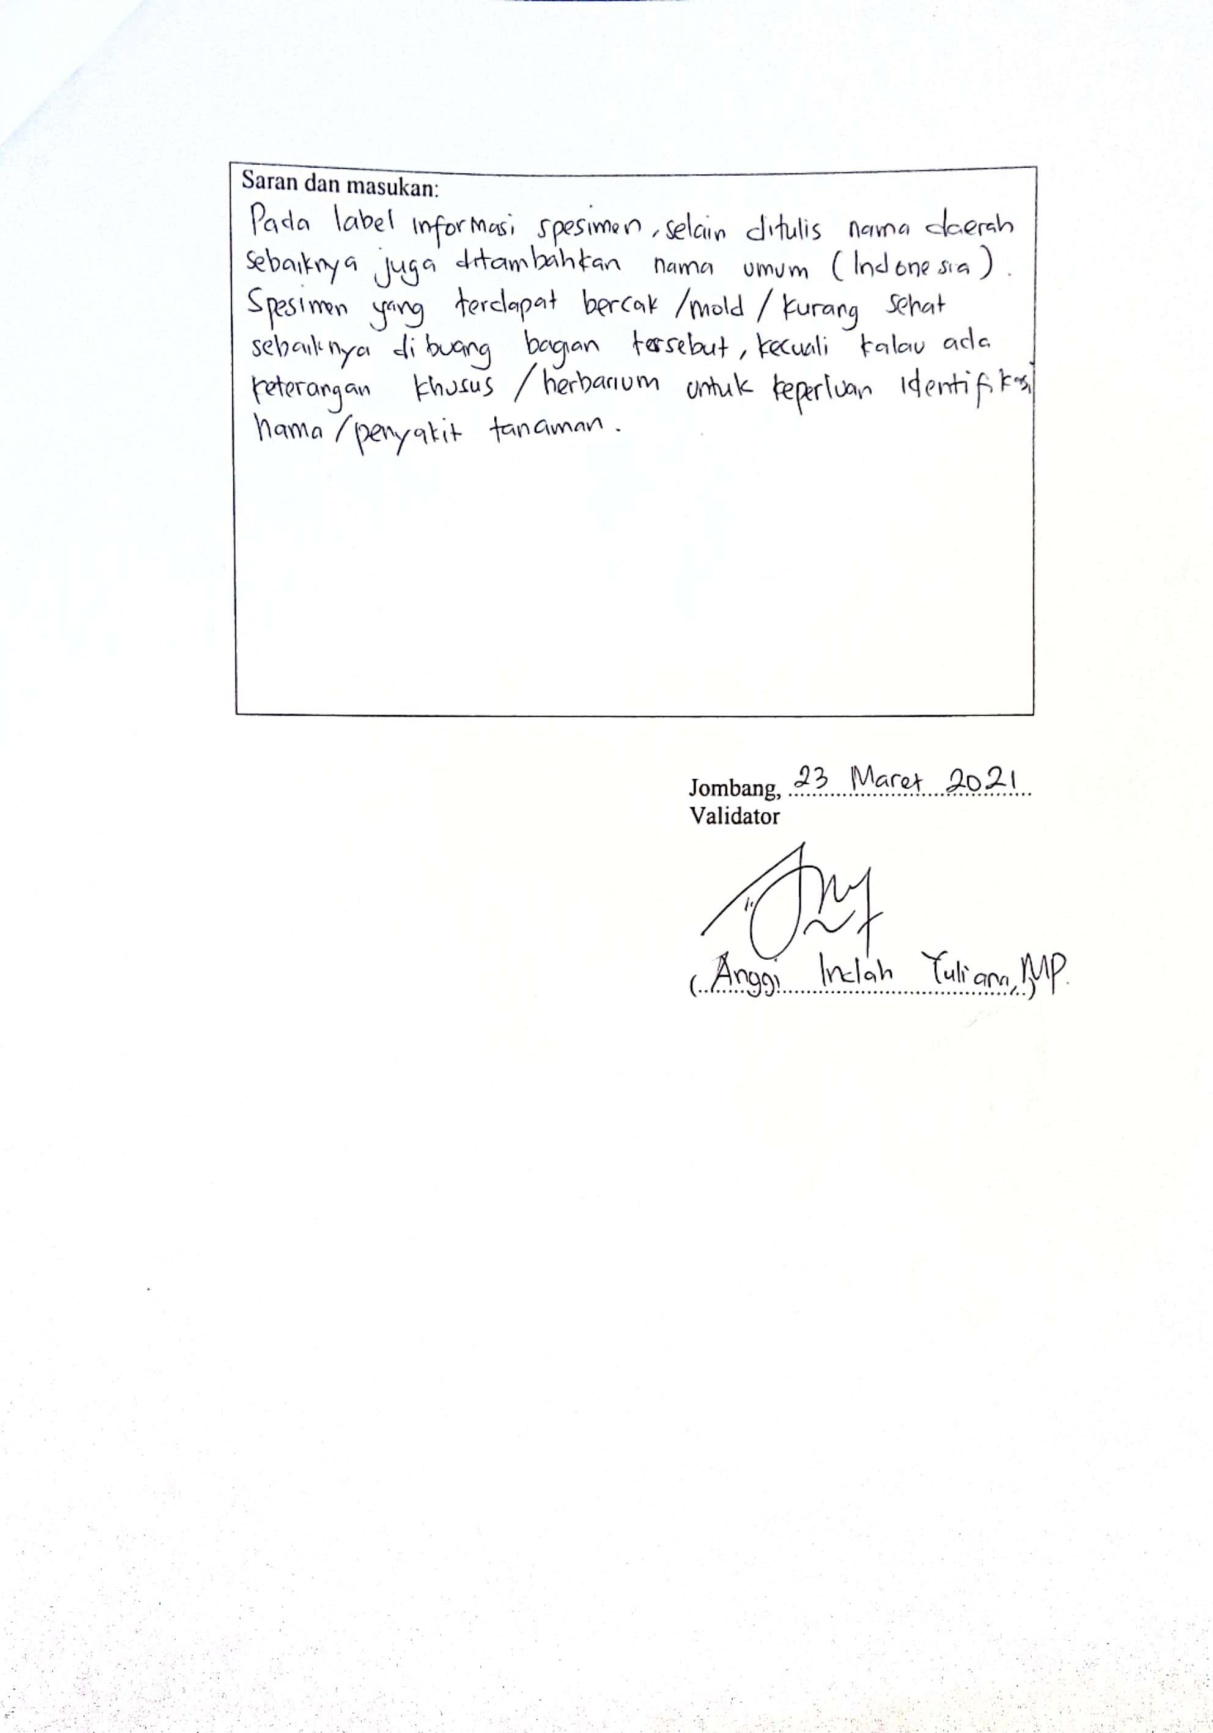 Saran dan masukan:
Pada label informasi spesimen, selain ditulis nama daerah
sebaiknya juga ditambahkan nama umum (Indonesia).
Spesimen yang terdapat bercak /mold / kurang sehat
sebaiknya dibuang bagian tersebut, kecuali kalau ada
keterangan khusus / herbarium untuk keperluan identifikasi
hama /penyakit tanaman.
Jombang, 23 Maret 2021
Validator
(Anggi Indah Yuliana, MP.)